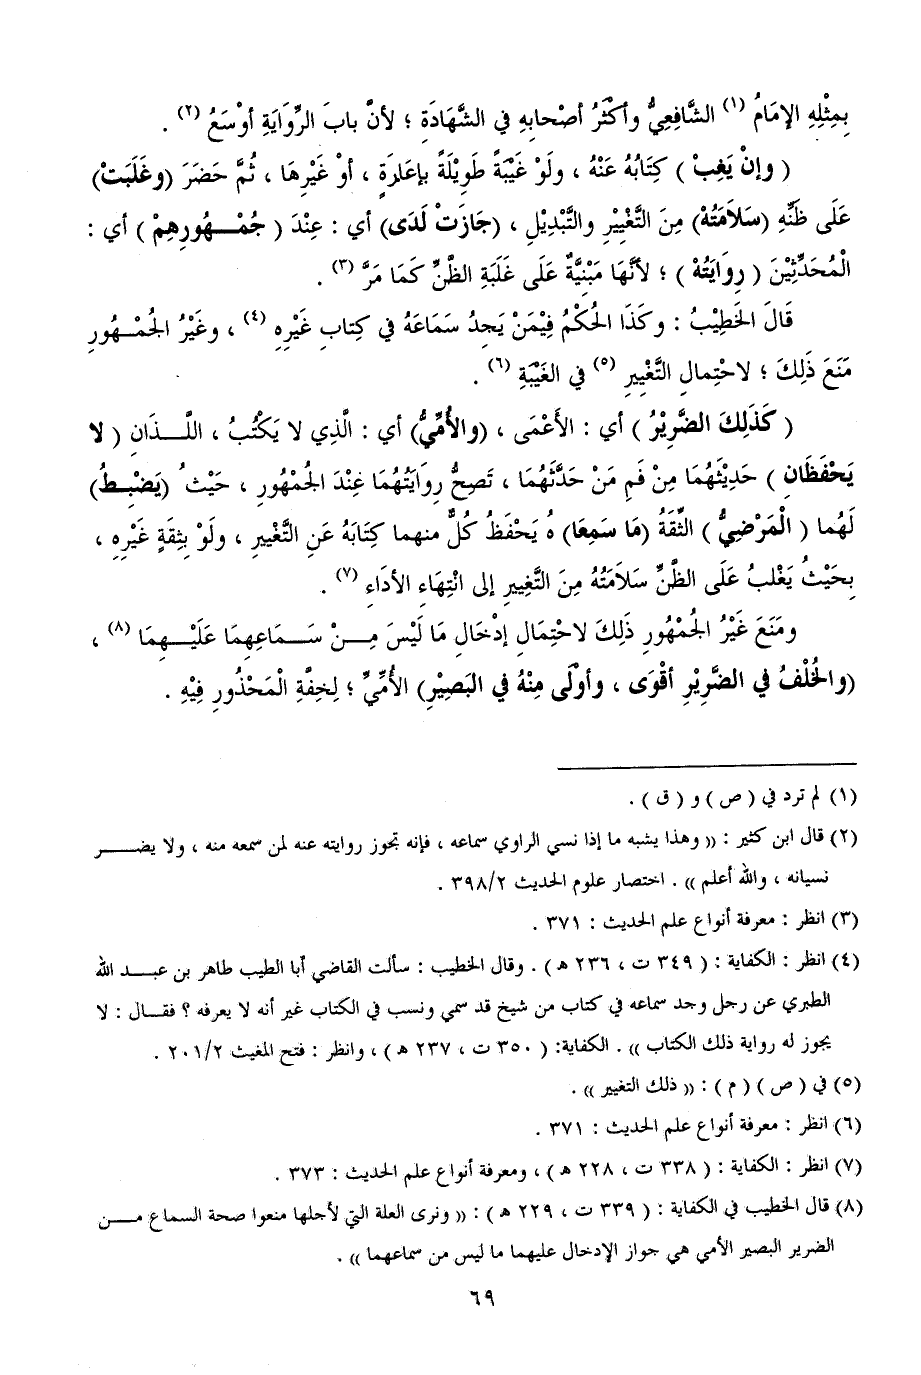 بِمِثْلِهِ الإمَامُ (١) الشَّافِعِيُّ وأكْثَرُ أصْحابِهِ في الشَّهَادَةِ ؛ لأنَّ بابَ الرِّوَايَةِ أوْسَعُ (٢) .
( وإنْ يَغِبْ ) كِتَابُهُ عَنْهُ ، ولَوْ غَيْبَةً طَوِيْلَةً بإعَارَةٍ ، أوْ غَيْرِهَا ، ثُمَّ حَضَرَ (وغَلَبَتْ)
عَلَى ظَنِّهِ (سَلاَمَتُهْ) مِنَ التَّغْييْرِ والتَّبْدِيلِ ، (جَازَتْ لَدَى) أي : عِنْدَ ( جُمْـهُورِهِمْ ) أي :
الْمُحَدِّثِيْنَ ( رِوَايَتُهْ ) ؛ لأنَّهَا مَبْنِيَّةٌ عَلَى غَلَبَةِ الظَّنِّ كَمَا مَرَّ (٣).
قَالَ الخَطِيْبُ : وكَذَا الحُكْمُ فِيمَنْ يَجِدُ سَمَاعَهُ في كِتابِ غَيْرِهِ (٤) ، وغَيْرُ الجُمْـهُورِ
مَنَعَ ذَلِكَ ؛ لاحْتِمالِ التَّغْييرِ (٥) في الغَيْبَةِ (٦) .
( كَذَلِكَ الضَّرِيْرُ ) أي : الأَعْمَى ، (والأُمِّيُّ) أي : الَّذِي لا يَكْتُبُ ، اللَّـذَانِ ( لا
يَحْفَظَانِ ) حَدِيْثَهُمَا مِنْ فَمِ مَنْ حَدَّثَهُمَا ، تَصِحُّ رِوَايَتُهُمَا عِنْدَ الجُمْهُورِ ، حَيْثُ (يَضْبِـطُ)
لَهُما ( الْمَرْضِيُّ ) الثِّقَةُ (مَا سَمِعَا) هُ يَحْفَظُ كُلٌّ منهما كِتَابَهُ عَنِ التَّغْييرِ ، ولَوْ بِثِقَةٍ غَيْرِهِ ،
بِحَيْثُ يَغْلبُ عَلَى الظَّنِّ سَلاَمَتُهُ مِنَ التَّغِييرِ إلى انْتِهَاءِ الأدَاءِ (٧) .
ومَنَعَ غَيْرُ الجُمْهُورِ ذَلِكَ لاحْتِمَالِ إدْخَالِ مَا لَيْسَ مِـنْ سَـمَاعِهِمَا عَلَيْـهِمَا (٨) ،
(والخُلْفُ في الضَّرِيْرِ أقْوَى ، وأوْلَى مِنْهُ في البَصِيْرِ) الأُمِّيِّ ؛ لِخِفَّةِ الْمَحْذُورِ فِيْهِ .
(١) لم ترد في ( ص ) و ( ق ) .
(٢) قال ابن كثير : (( وهذا يشبه ما إذا نسي الراوي سماعه ، فإنه تجوز روايته عنه لمن سمعه منه ، ولا يضـر
نسيانه ، والله أعلم )) . اختصار علوم الحديث ٣٩٨/٢ .
(٣) انظر : معرفة أنواع علم الحديث : ٣٧١ .
(٤) انظر : الكفاية : ( ٣٤٩ ت ، ٢٣٦ هـ ) . وقال الخطيب : سألت القاضي أبا الطيب طاهر بن عبـد الله
الطبري عن رجل وجد سماعه في كتاب من شيخ قد سمي ونسب في الكتاب غير أنه لا يعرفه ؟ فقـال : لا
يجوز له رواية ذلك الكتاب )) . الكفاية: ( ٣٥٠ ت ، ٢٣٧ هـ ) ، وانظر : فتح المغيث ٢٠١/٢ .
(٥) في ( ص ) ( م ) : (( ذلك التغيير )) .
(٦) انظر : معرفة أنواع علم الحديث : ٣٧١ .
(٧) انظر : الكفاية : ( ٣٣٨ ت ، ٢٢٨ هـ ) ، ومعرفة أنواع علم الحديث : ٣٧٣ .
(٨) قال الخطيب في الكفاية : ( ٣٣٩ ت ، ٢٢٩ هـ ) : (( ونرى العلة التي لأجلها منعوا صحة السماع مـن
الضرير البصير الأمي هي جواز الإدخال عليهما ما ليس من سماعهما )) .
٦٩